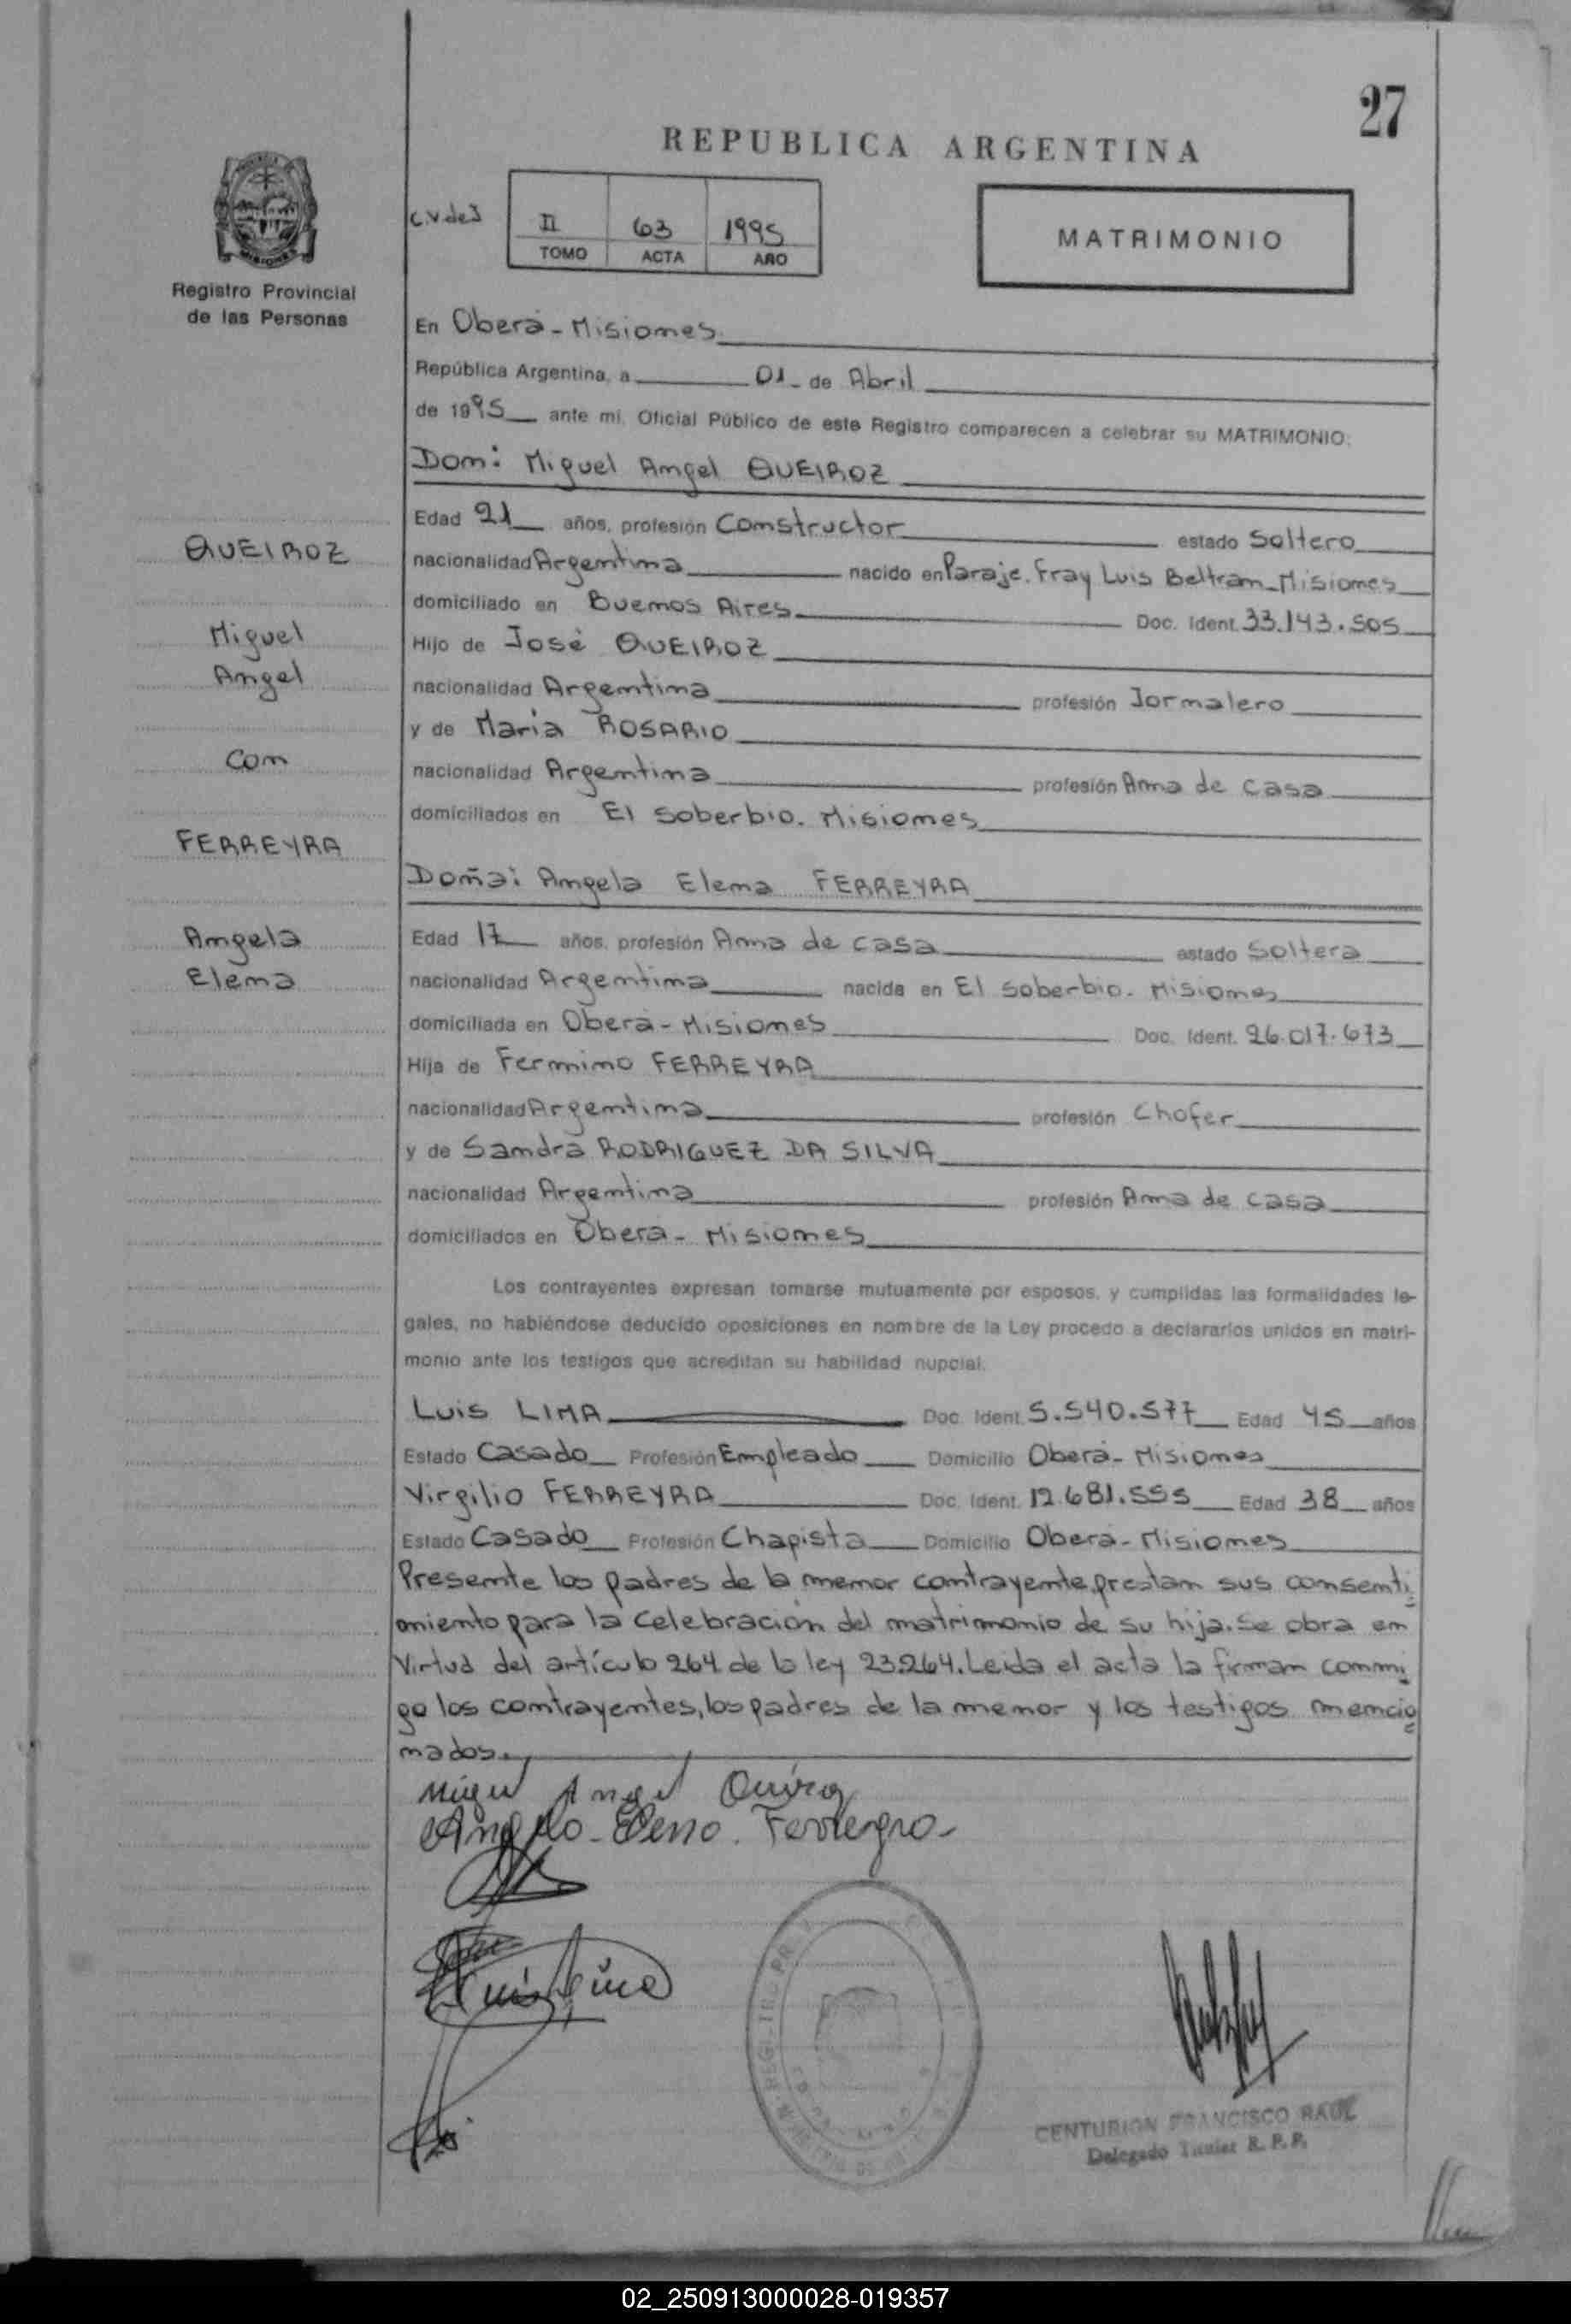 27
REPUBLICA ARGENTINA
C.V.deJ
II 63 1995
TOMO ACTA AÑO
MATRIMONIO
MISIONES
Registro Provincial
de las Personas
En Oberá - Misiones
República Argentina, a 01 - de Abril
de 1995 ante mi, Oficial Público de este Registro comparecen a celebrar su MATRIMONIO:
Don: Miguel Angel QUEIROZ
Edad 21 años, profesión Constructor estado Soltero
QUEIROZ
nacionalidad Argentina nacido en Paraje. Fray Luis Beltran - Misiones
domiciliado en Buenos Aires Doc. Ident. 33.143.505
Miguel
Hijo de José QUEIROZ
Angel
nacionalidad Argentina profesión Jornalero
y de Maria ROSARIO
Con
nacionalidad Argentina profesión Ama de casa
domiciliados en El Soberbio. Misiones
FERREYRA
Doña: Angela Elena FERREYRA
Angela
Edad 17 años, profesión Ama de casa estado Soltera
Elena
nacionalidad Argentina nacida en El Soberbio. Misiones
domiciliada en Oberá - Misiones Doc. Ident. 26.017.673
Hija de Fermino FERREYRA
nacionalidad Argentina profesión Chofer
y de Sandra RODRIGUEZ DA SILVA
nacionalidad Argentina profesión Ama de casa
domiciliados en Oberá - Misiones
Los contrayentes expresan tomarse mutuamente por esposos, y cumplidas las formalidades le-
gales, no habiéndose deducido oposiciones en nombre de la Ley procedo a declararlos unidos en matri-
monio ante los testigos que acreditan su habilidad nupcial.
Luis LIMA Doc. Ident. 5.540.577 Edad 45 años
Estado Casado Profesión Empleado Domicilio Oberá - Misiones
Virgilio FERREYRA Doc. Ident. 12.681.555 Edad 38 años
Estado Casado Profesión Chapista Domicilio Oberá - Misiones
Presente los padres de la menor contrayente, prestan sus consenti
miento para la celebración del matrimonio de su hija. Se obra en
Virtud del artículo 264 de la ley 23.264. Leida el acta la firman conmi
go los contrayentes, los padres de la menor y los testigos mencio
nados.
Miguel Angel
Angela - Elena. Ferreyra -
CENTURION FRANCISCO RAUL
Delegado Titular R. P. P.
02_250913000028-019357